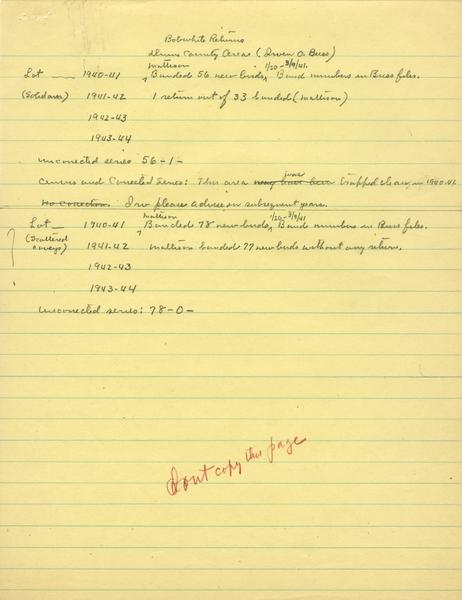 Bobwhite Returns
Dunn County Areas (Irven O. Buss)
Mattison 1/20-3/9/41.
Lot __ 1940-41 ^ Banded 56 new birds, Band numbers in Buss files.
(Solid area) 1941-42 1 return out of 33 banded (Mattison)
1942-43
1943-44
Uncorrected series 56-1-
June
Census and Corrected Series: This area may have been trapped clean in 1940-41.
No correction. Irv please advise on subsequent years.
Mattison 1/20-3/9/41
Lot __ 1940-41 ^ Banded 78 new birds, Band numbers in Buss files.
(Scattered coveys) 1941-42 Mattison banded 77 new birds without any return.
1942-43
1943-44
Uncorrected series: 78-0-
Dont copy this page